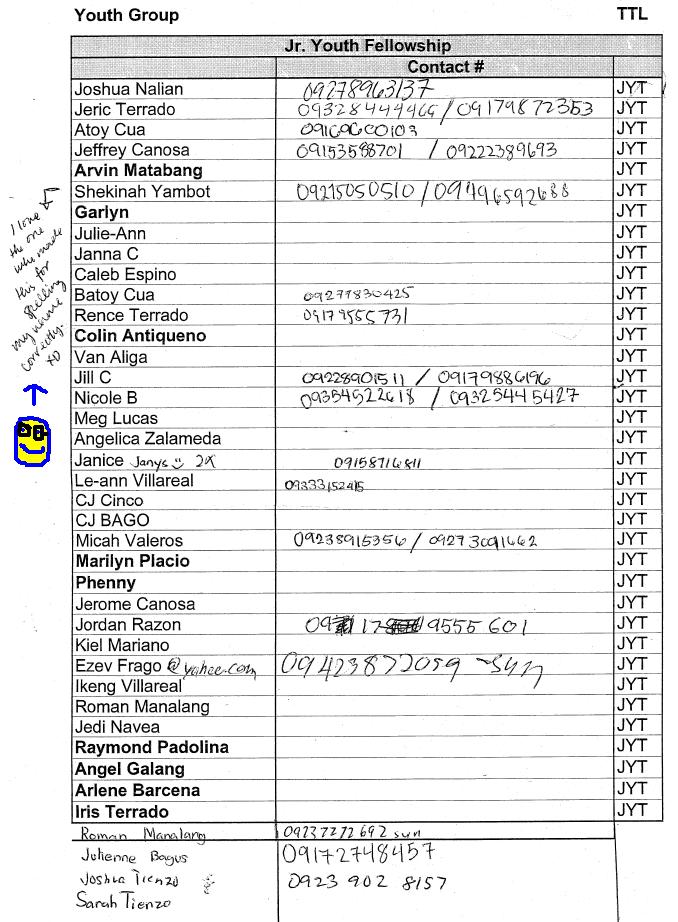 Youth Group TTL
Jr. Youth Fellowship
Contact #
Joshua Nalian 09278963137 JYT
Jeric Terrado 09328444466 / 09179872353 JYT
Atoy Cua JYT
Jeffrey Canosa 09153588701 / 09222389693 JYT
Arvin Matabang JYT
Shekinah Yambot 09215050510 / 09496592688 JYT
Garlyn JYT
Julie-Ann JYT
Janna C JYT
Caleb Espino JYT
Batoy Cua 09277830425 JYT
Rence Terrado 09179555731 JYT
Colin Antiqueno JYT
Van Aliga JYT
Jill C 09228901511 / 09179886196 JYT
Nicole B 09354522618 / 09325445427 JYT
Meg Lucas JYT
Angelica Zalameda JYT
Janice Janys 2x 09158716811 JYT
Le-ann Villareal 09333152415 JYT
CJ Cinco JYT
CJ BAGO JYT
Micah Valeros 09238915356 / 09273091662 JYT
Marilyn Placio JYT
Phenny JYT
Jerome Canosa JYT
Jordan Razon 09 17 9555 601 JYT
Kiel Mariano JYT
Ezev Frago @yahee.com 09423872059 -sun JYT
Ikeng Villareal JYT
Roman Manalang JYT
Jedi Navea JYT
Raymond Padolina JYT
Angel Galang JYT
Arlene Barcena JYT
Iris Terrado JYT
Roman Manalang 09237272692 sun
Julienne Bagus 09172748457
Joshua Tienzo 0923 902 8157
Sarah Tienzo
I love
the one
who made
this for
spelling
my name
correctly.
XD